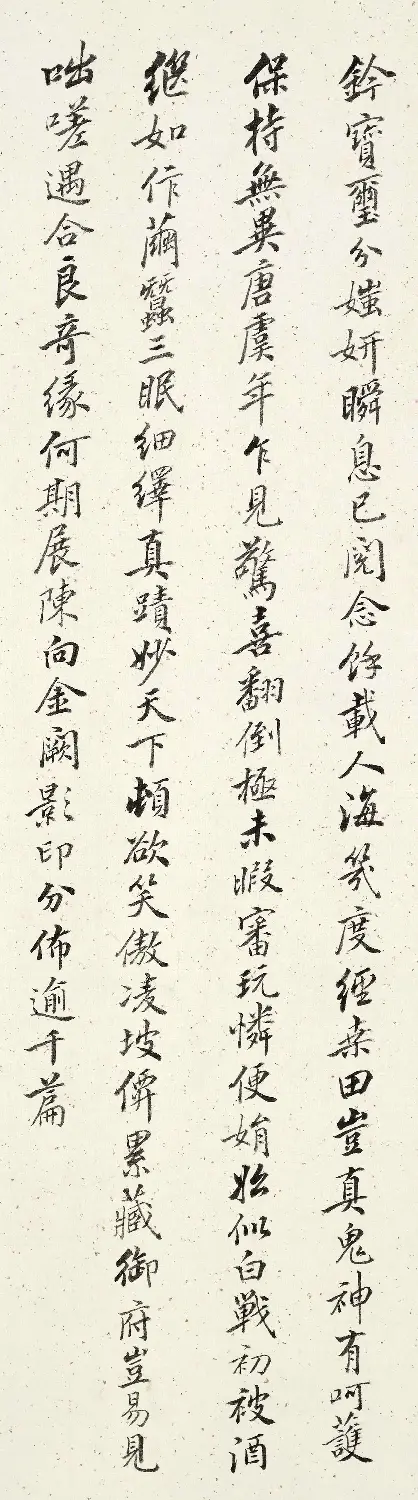 鈐寶璽分媸妍瞬息已閱念餘載人海幾度經桒田豈真鬼神有呵護
保持無異唐虞年乍見驚喜翻倒極未暇審玩憐便娟始似白戰初被酒
繼如作繭蠶三眠細繹真蹟妙天下頓欲笑傲凌坡儕累藏御府豈易見
咄嗟遇合良奇緣何期展陳向金闕影印分佈逾千篇